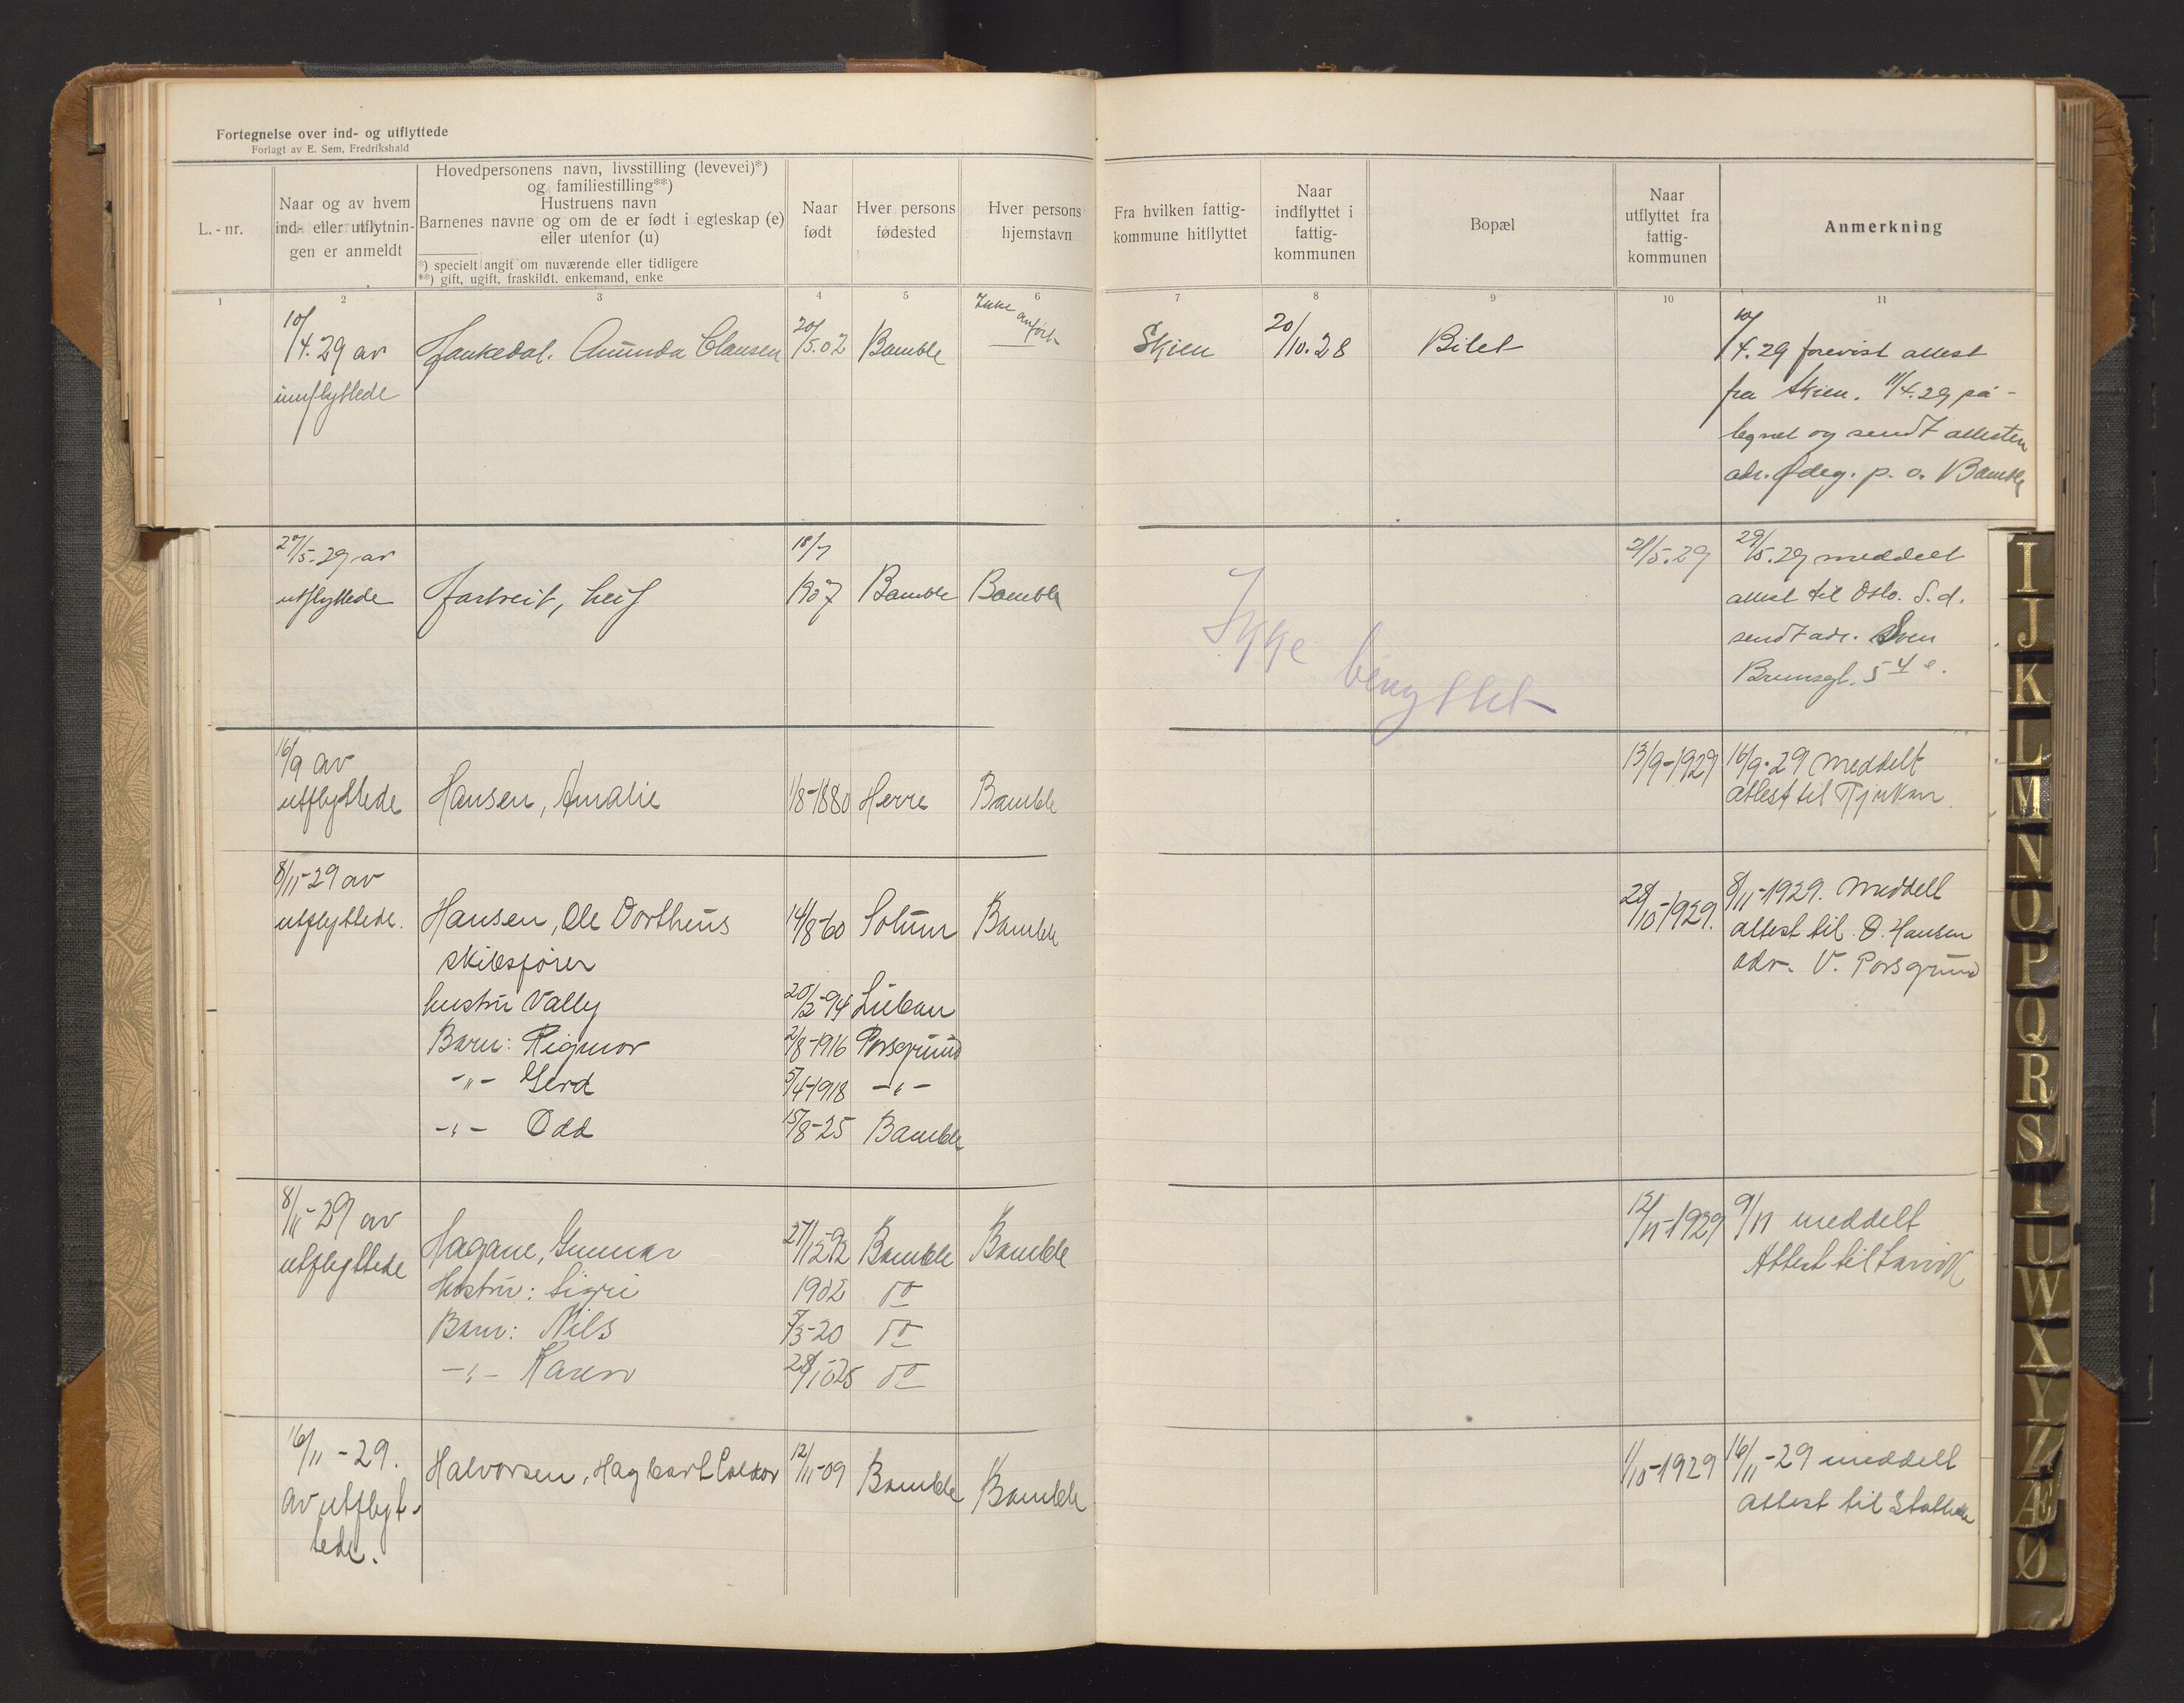 Fortegnelse over ind- og utflyttede
Forlagt av E. Sem, Fredrikshald
L.-nr.
Naar og av hvem
ind- eller utflytnin-
gen er anmeldt
Hovedpersonens navn, livsstilling (levevei)*)
og familiestilling**)
Hustruens navn
Barnenes navne og om de er født i egteskap (e)
eller utenfor (u)
*) specielt angit om nuværende eller tidligere
**) gift, ugift, fraskildt, enkemand, enke
Naar
født
Hver persons
fødested
Hver persons
hjemstavn
Fra hvilken fattig-
kommune hitflyttet
Naar
indflyttet i
fattig-
kommunen
Bopæl
Naar
utflyttet fra
fattig-
kommunen
Anmerkning
1 2 3 4 5 6 7 8 9 10 11
10/4. 29 av
innflyttede
Amunda Clausen
20/5.02
Bamble
Ikke anført
Skien
20/10.28
10/4.29 forevist attest
fra Skien. 11/4.29 på-
tegnet og sendt attesten
adr. Ødeg. p. o. Bamble
27/5.29 av
utflyttede
18/7
1907
Bamble
Bamble
Ikke benyttet
29/5.29 meddelt
attest til Oslo. S.d.
sendt adr. Sven
Brunsgt. 5 4 e.
16/9 av
utflyttede
Hansen, Amalie
1/8-1880
Herre
Bamble
13/9-1929
16/9.29 meddelt
attest til Rjukan.
8/11-29 av
utflyttede.
Hansen, Ole Dortheus
skibsfører
hustru Vally
Barn: Rigmor
-"- Gerd
-"- Odd
14/8-60 Solum Bamble
20/2-94 Libau
2/8-1916 Porsgrund
5/4-1918 -"-
15/8-25 Bamble
28/10-1929.
8/11-1929. meddelt
attest til O. Hansen
adr. V. Porsgrund
8/11-29 av
utflyttede
Hagane, Gunnar
Hustru: Sigri
Barn: Nils
-"- Karen
27/12-92 Bamble Bamble
1902 do
5/3-20 do
28/10-25 do
12/11-1929
9/11 meddelt
Attest til Larvik
16/11-29.
av utflyt-
tede.
Halvorsen, Hagbart
12/11-09
Bamble
Bamble
1/10-1929
16/11-29 meddelt
attest til Stathelle
I
J
K
L
M
N
O
P
Q
R
S
T
U
W
X
Y
Z
Æ
Ø